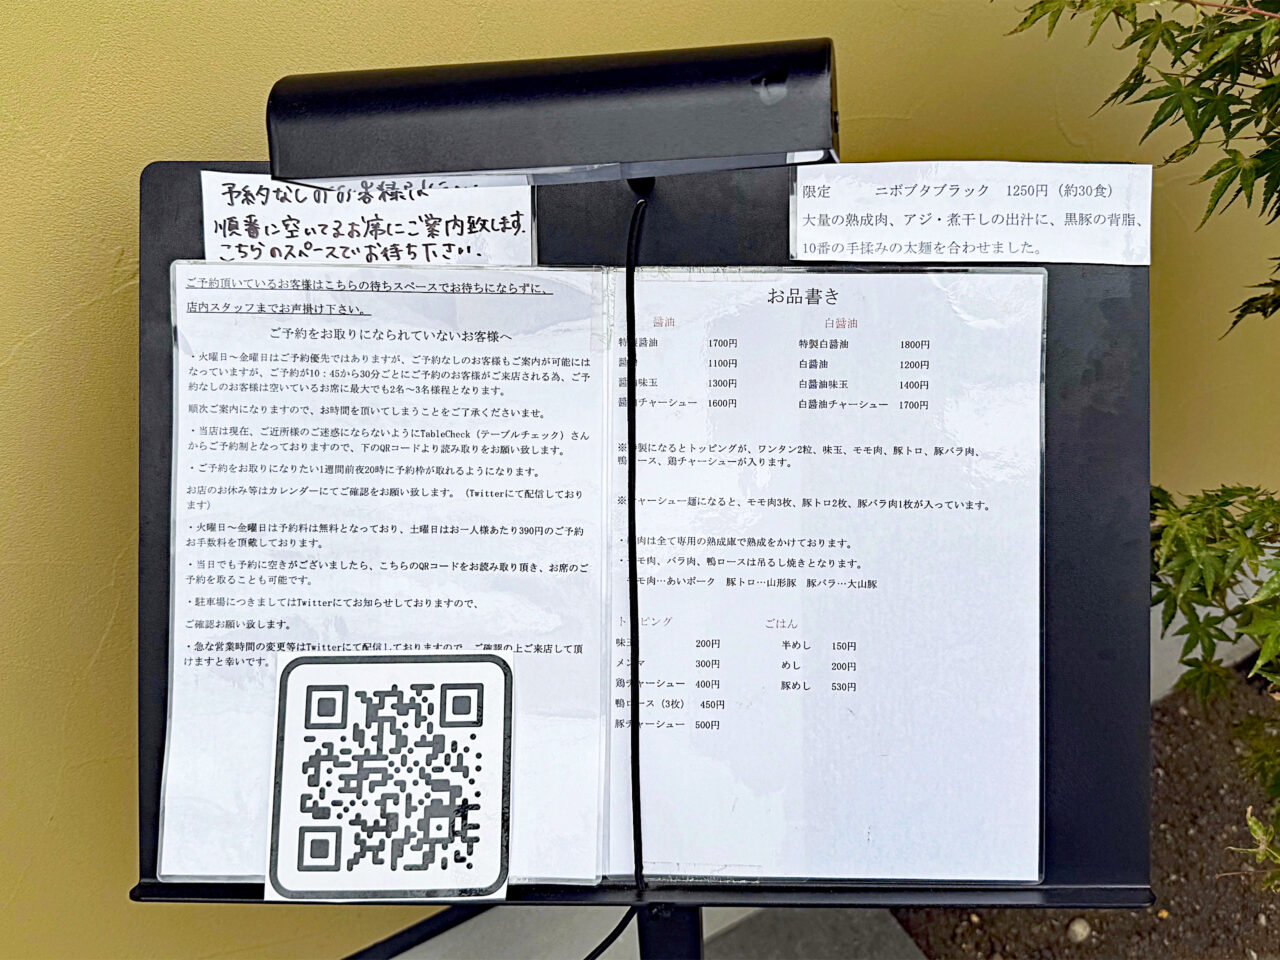 予約なしのお客様は
順番に空いてるお席にご案内致します.
こちらのスペースでお待ち下さい.
限定 ニボブタブラック 1250円（約30食）
大量の熟成肉、アジ・煮干しの出汁に、黒豚の背脂、
10番の手揉みの太麺を合わせました。
ご予約頂いているお客様はこちらの待ちスペースでお待ちにならずに、
店内スタッフまでお声掛け下さい。
ご予約をお取りになられていないお客様へ
・火曜日〜金曜日はご予約優先ではありますが、ご予約なしのお客様もご案内が可能には
なっていますが、ご予約が10：45から30分ごとにご予約のお客様がご来店される為、ご予
約なしのお客様は空いているお席に最大でも2名〜3名様程となります。
順次ご案内になりますので、お時間を頂いてしまうことをご了承くださいませ。
・当店は現在、ご近所様のご迷惑にならないようにTableCheck（テーブルチェック）さん
からご予約制となっておりますので、下のQRコードより読み取りをお願い致します。
・ご予約をお取りになりたい1週間前夜20時に予約枠が取れるようになります。
お店のお休み等はカレンダーにてご確認をお願い致します。（Twitterにて配信しており
ます）
・火曜日〜金曜日は予約料は無料となっており、土曜日はお一人様あたり390円のご予約
お手数料を頂戴しております。
・当日でも予約に空きがございましたら、こちらのQRコードをお読み取り頂き、お席のご
予約を取ることも可能です。
・駐車場につきましてはTwitterにてお知らせしておりますので、
ご確認お願い致します。
・急な営業時間の変更等はTwitterにて配信しておりますので、ご確認の上ご来店して頂
けますと幸いです。
お品書き
醤油 白醤油
特製醤油 1700円 特製白醤油 1800円
醤油 1100円 白醤油 1200円
醤油味玉 1300円 白醤油味玉 1400円
醤油チャーシュー 1600円 白醤油チャーシュー 1700円
※特製になるとトッピングが、ワンタン2粒、味玉、モモ肉、豚トロ、豚バラ肉、
鴨ロース、鶏チャーシューが入ります。
※チャーシュー麺になると、モモ肉3枚、豚トロ2枚、豚バラ肉1枚が入っています。
肉は全て専用の熟成庫で熟成をかけております。
・モモ肉、バラ肉、鴨ロースは吊るし焼きとなります。
モモ肉…あいポーク 豚トロ…山形豚 豚バラ…大山豚
トッピング ごはん
味玉 200円 半めし 150円
メンマ 300円 めし 200円
鶏チャーシュー 400円 豚めし 530円
鴨ロース（3枚） 450円
豚チャーシュー 500円